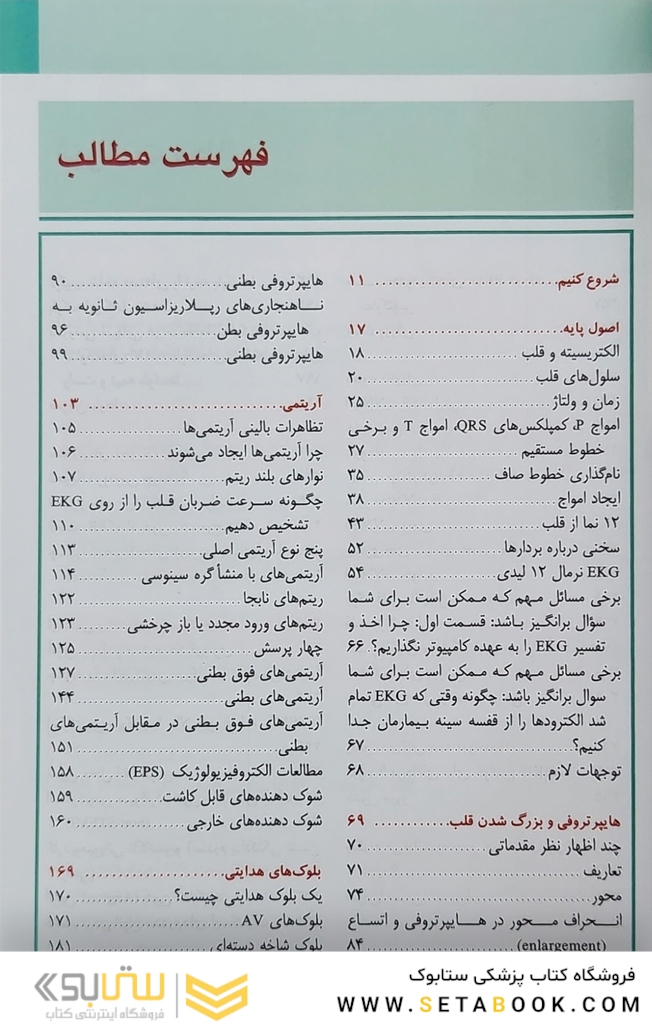 فهرست مطالب
شروع کنیم ........................ ۱۱
اصول پایه ........................ ۱۷
الکتریسیته و قلب ........................ ۱۸
سلول‌های قلب ........................ ۲۰
زمان و ولتاژ ........................ ۲۵
امواج P، کمپلکس‌های QRS، امواج T و برخی
خطوط مستقیم ........................ ۲۷
نام‌گذاری خطوط صاف ........................ ۳۵
ایجاد امواج ........................ ۳۸
۱۲ نما از قلب ........................ ۴۳
سخنی درباره بردارها ........................ ۵۲
EKG نرمال ۱۲ لیدی ........................ ۵۴
برخی مسائل مهم که ممکن است برای شما
سؤال برانگیز باشد: قسمت اول: چرا اخذ و
تفسیر EKG را به عهده کامپیوتر نگذاریم؟. ۶۶
برخی مسائل مهم که ممکن است برای شما
سوال برانگیز باشد: چگونه وقتی که EKG تمام
شد الکترودها را از قفسه سینه بیمارمان جدا
کنیم؟ ........................ ۶۷
توجهات لازم ........................ ۶۸
هایپرتروفی و بزرگ شدن قلب ............ ۶۹
چند اظهار نظر مقدماتی ........................ ۷۰
تعاریف ........................ ۷۱
محور ........................ ۷۴
انحراف محور در هایپرتروفی و اتساع
(enlargement) ........................ ۸۴
هایپرتروفی بطنی ........................ ۹۰
ناهنجاری‌های رپلاریزاسیون ثانویه به
هایپرتروفی بطن ........................ ۹۶
هایپرتروفی بطنی ........................ ۹۹
آریتمی ........................ ۱۰۳
تظاهرات بالینی آریتمی‌ها ........................ ۱۰۵
چرا آریتمی‌ها ایجاد می‌شوند ............ ۱۰۶
نوارهای بلند ریتم ........................ ۱۰۷
چگونه سرعت ضربان قلب را از روی EKG
تشخیص دهیم ........................ ۱۱۰
پنج نوع آریتمی اصلی ........................ ۱۱۳
آریتمی‌های با منشأ گره سینوسی ............ ۱۱۴
ریتم‌های نابجا ........................ ۱۲۲
ریتم‌های ورود مجدد یا باز چرخشی ........ ۱۲۳
چهار پرسش ........................ ۱۲۵
آریتمی‌های فوق بطنی ........................ ۱۲۷
آریتمی‌های بطنی ........................ ۱۴۴
آریتمی‌های فوق بطنی در مقابل آریتمی‌های
بطنی ........................ ۱۵۱
مطالعات الکتروفیزیولوژیک (EPS) ......... ۱۵۸
شوک دهنده‌های قابل کاشت ............ ۱۵۹
شوک دهنده‌های خارجی ............ ۱۶۰
بلوک‌های هدایتی ........................ ۱۶۹
یک بلوک هدایتی چیست؟ ............ ۱۷۰
بلوک‌های AV ........................ ۱۷۱
بلوک شاخه دسته‌ای ........................ ۱۸۱
فروشگاه کتاب پزشکی ستابوک
WWW.SETABOOK.COM
ستابوک
فروشگاه اینترنتی کتاب